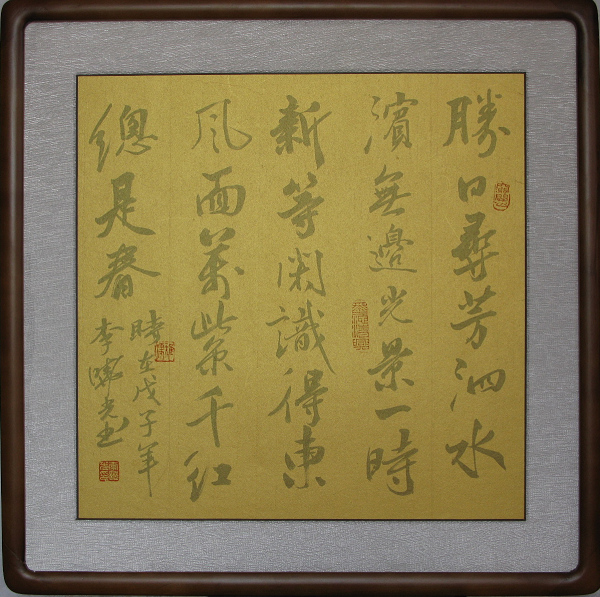 勝日尋芳泗水
濱無邊光景一時
新等閑識得東
風面萬紫千紅
總是春
時在戊子年
李曉光书